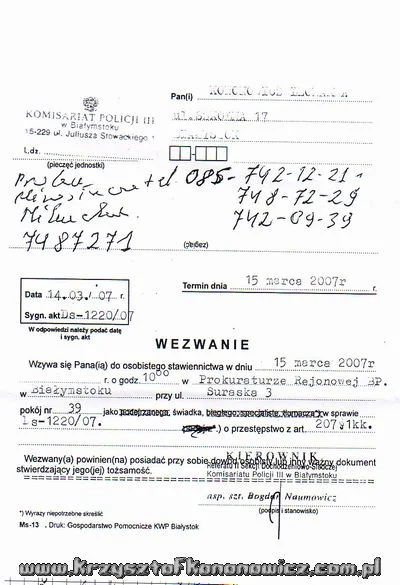 Pan(i)
KOMISARIAT POLICJI III
w Białymstoku
15-229 ul. Juliusza Słowackiego
ul. 17
BIAŁYSTOK
L.dz.
(pieczęć jednostki)
tel 085- 742-12-21
748-72-29
742-09-39
7487271
Termin dnia 15 marca 2007r r.
Data 14.03./07 r.
Sygn. akt Ds-1220/07
W odpowiedzi należy podać datę
i sygn. akt
WEZWANIE
Wzywa się Pana(ią) do osobistego stawiennictwa w dniu 15 marca 2007r
r. o godz. 10⁰⁰ w Prokuraturze Rejonowej BP.
w Białymstoku przy ul. Suraska 3
pokój nr 39 jako podejrzanego, świadka, biegłego, specjalisty, tłumacza*) w sprawie
Ds-1220/07. o przestępstwo z art. 207§1kk.
Wezwany(a) powinien(na) posiadać przy sobie dowód osobisty lub inny ważny dokument
stwierdzający jego(jej) tożsamość.
KIEROWNIK
Referatu II Sekcji Dochodzeniowo-Śledczej
Komisariatu Policji III w Białymstoku
asp. szt. Bogdan Naumowicz
(podpis i stanowisko)
*) Wyrazy niepotrzebne skreślić
Ms-13 . Druk: Gospodarstwo Pomocnicze KWP Białystok
www.krzysztofkononowicz.com.pl